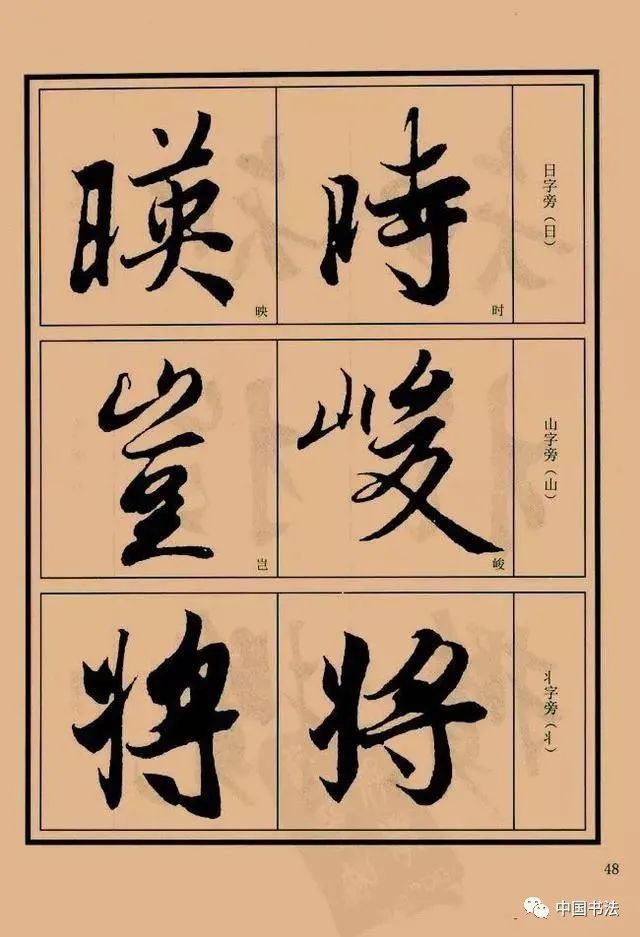 日字旁（日）
時
时
暎
映
山字旁（山）
峻
峻
豈
岂
丬字旁（丬）
將
將
48
中国书法